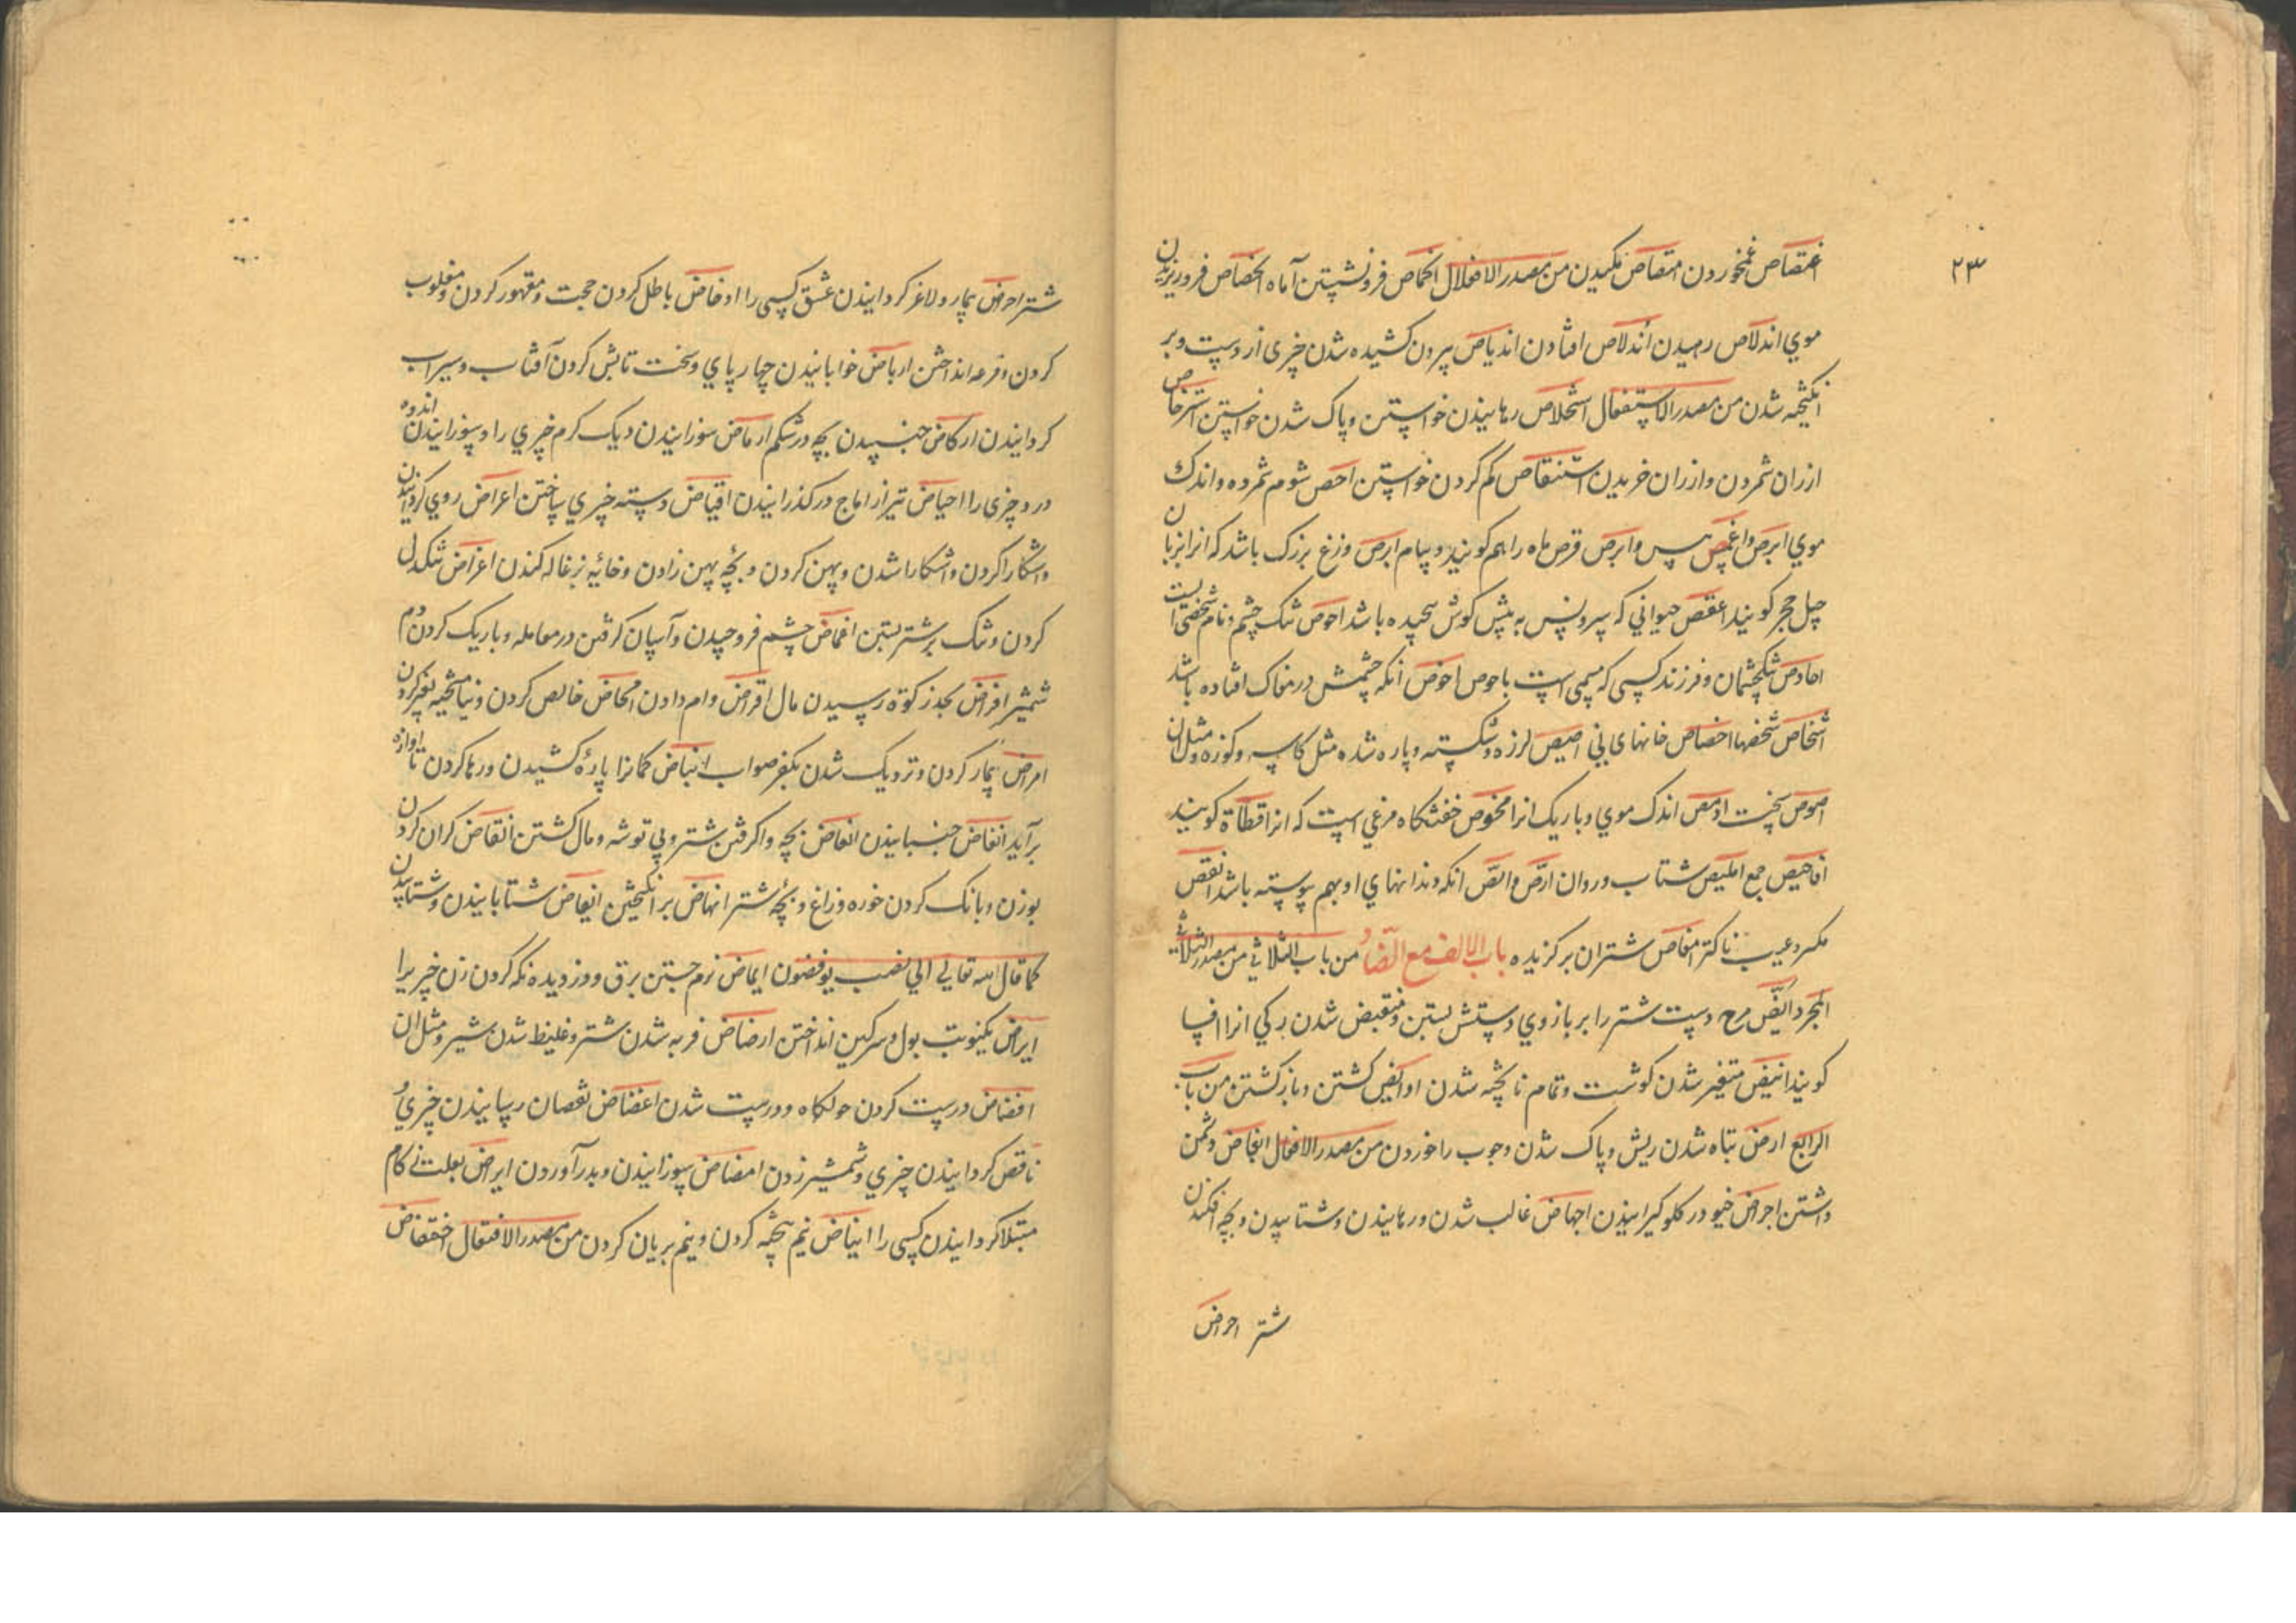 ۲۳
اغتصاص غمخوردن امتصاص مکیدن من مصدر الانفعلال انخماص فرونشستن آماه انحصاص فروریزیدن
موي اندلاص رهیدن اندلاص افتادن اندیاص بیرون کشیده شدن چیزی از دست و بر
انگیخته شدن من مصدر الاستفعال استخلاص رهانیدن خواستن و پاک شدن خواستن استرخاص
ارزان شمردن و ارزان خریدن استنقاص کم کردن خواستن احص شوم شمرده و اندک
موي ابرص و اغمص پیس و ابرص قرص ماه را هم کویند و سام ابرص وزغ بزرک باشد که انرا بزبان
چل حجر کویند اعقص حیوانی که سرونش به پیش کوش پیچیده باشد احوص تنک چشم و نام شخصی است
احاوص تنکچشمان و فرزند کسی که مسمی است باحوص اخوص انکه چشمش در مغاک افتاده باشد
اشخاص شخصها اخصاص خانهای نی اصیص لرزه و شکسته و پاره شده مثل کاسه و کوزه و مثل ان
اصوص سخت ادمص اندک موي و باریک انرا مخوص خفتنکاه مرغی است که انرا قطاة کویند
افاحیص جمع املیص شتاب و روان ارص و الص انکه دندانهاي او بهم پیوسته باشد انقص
مکسر و عیب ناکتر امغاص شتران برکزیده باب الالف مع الضاد من باب الثلاثی من مصدر الثلاثی
المجرد ابض دست شتر را بر بازوي دستش بستن و منقبض شدن رکی انرا نسا
کویند انیض متغیر شدن کوشت و تمام ناپخته شدن او ایض کشتن و باز کشتن من باب
الرابع ارض تباه شدن ریش و پاک شدن و چوب را خوردن من مصدر الافعال ابغاض دشمن
داشتن اجراض خیو در کلو کیرانیدن اجهاض غالب شدن و رهانیدن و شتابیدن و بچه افکندن
شتر احراض
شتر احراض بیمار و لاغر کردانیدن عشق کسی را ادحاض باطل کردن حجت و مقهور کردن و مغلوب
کردن و قرعه انداختن ارباض خوابانیدن چهارپاي و سخت تابش کردن آفتاب و سیراب
کردانیدن ارکاض جنبیدن بچه در شکم ارماض سوزانیدن دیک کرم چیزي را و سوزانیدن اندوه
درد چیزی را احیاض تیر از اماج در کذرانیدن اقیاض دسته چیزي ساختن اعراض روي کردانیدن
و اشکارا کردن و اشکارا شدن و پهن کردن و بچۀ پهن زادن و خائیه بزغاله کندن اغراض تنکدل
کردن و تنک بر شتر بستن اغماض چشم فرو چیدن و آسان کرفتن در معامله و باریک کردن دم
شمشیر افراض بحد زکوة رسیدن مال اقراض وام دادن امحاض خالص کردن و نیامیخته بغیر کردن
امراض بیمار کردن و نزدیک شدن بکفر صواب انباض کمانرا پارۀ کشیدن و رها کردن تا اوازه
برآید انغاض جنبانیدن انفاض بچه واکرفتن شتر و بی توشه و مال کشتن انقاض کران کردن
بوزن و بانک کردن خوره و زاغ و بچۀ شتر انهاض برانکیختن ایفاض شتابانیدن و شتابیدن
کما قال الله تعالی الی نصب یوفضون ایماض نرم جستن برق و دزدیده نکه کردن زن چیزیرا
ایراض بکنوبت بول و سرکین انداختن ارضاض فربه شدن شتر و غلیظ شدن شیر و مثل ان
افضاض درست کردن حولکاه و درست شدن اغضاض نقصان رسانیدن چیزي و
ناقص کردانیدن چیزي و شمشیر زدن امضاض سوزانیدن و بدرآوردن ایراض بعلت نی کام
مبتلا کردانیدن کسی را انیاض نیم پخته کردن و نیم بریان کردن من مصدر الافتعال اختفاض